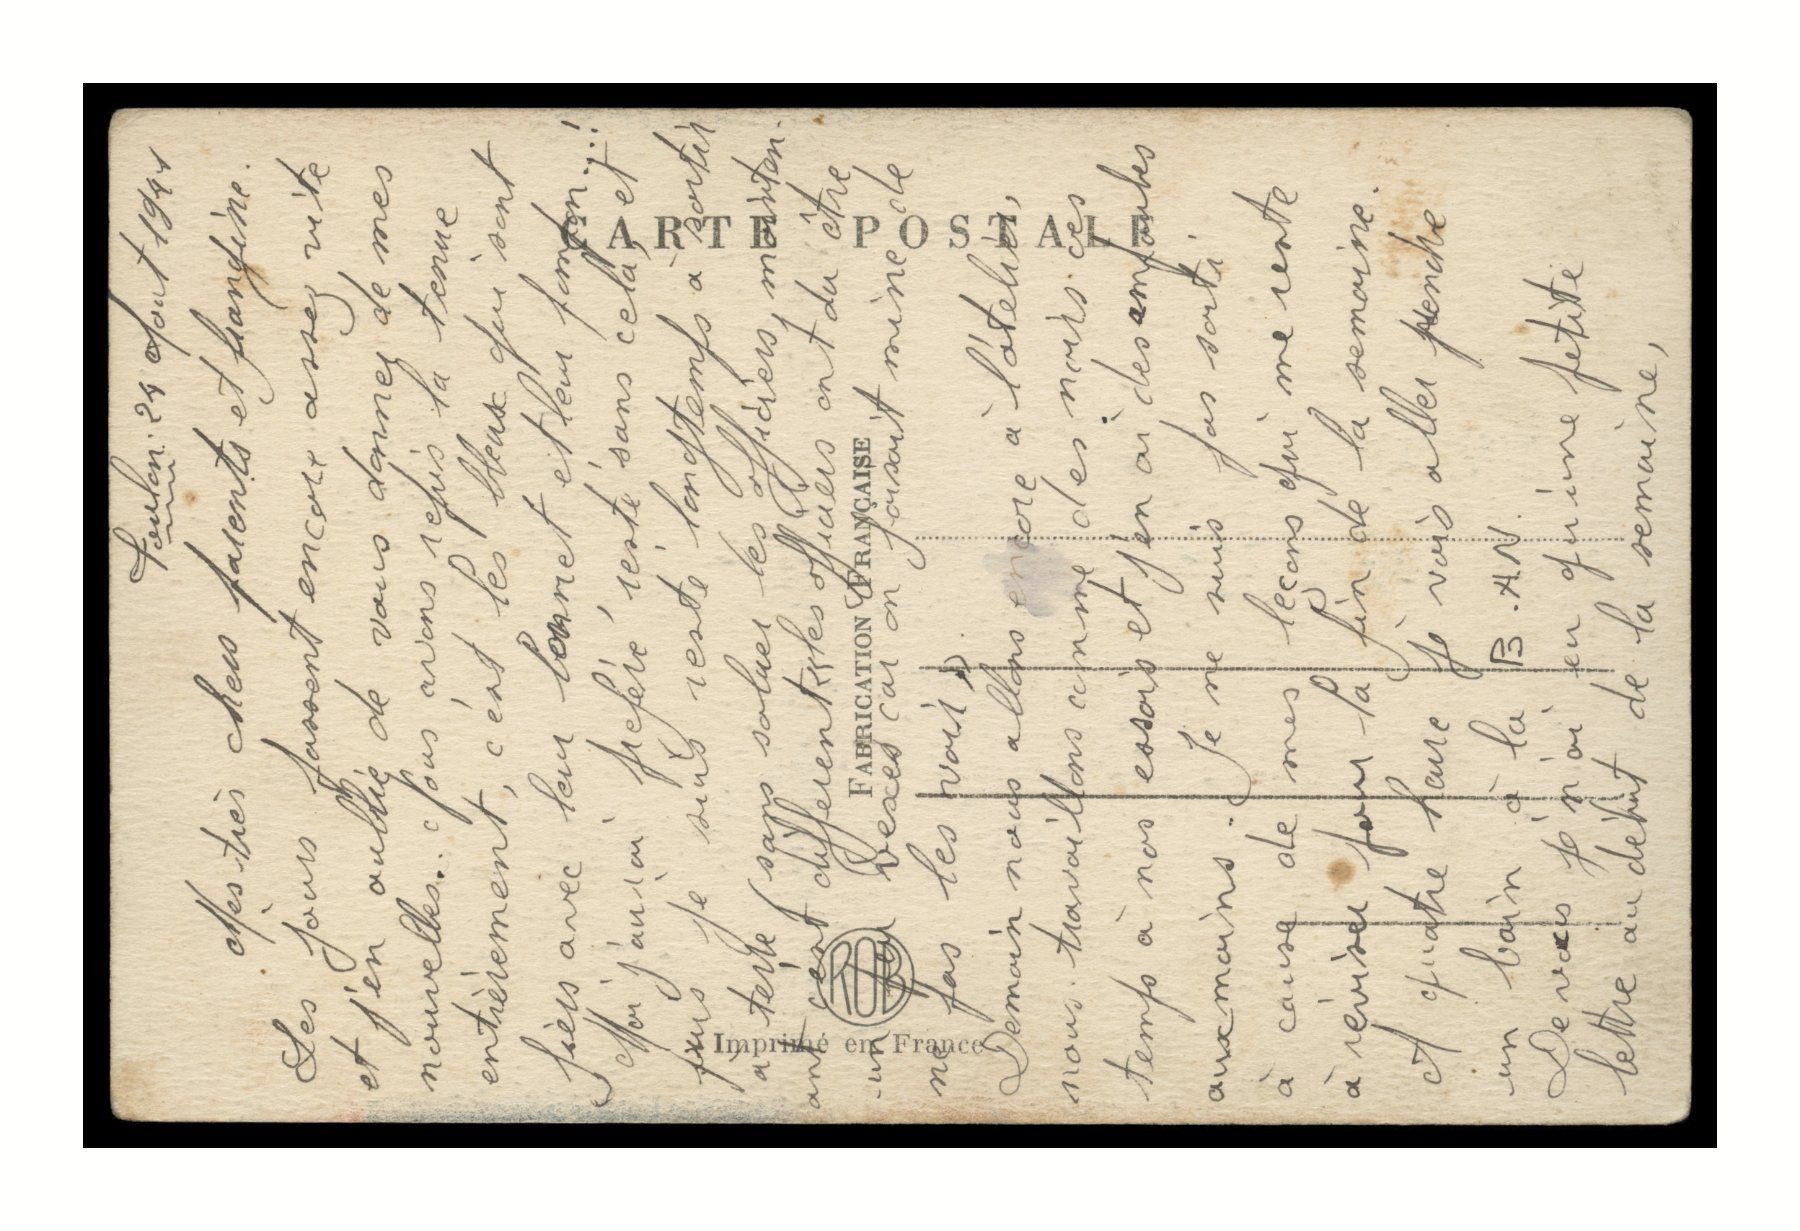 Toulon. 24 Aout 1941
Mes très chers parents et frangine.
Les jours passent encore assez vite
et j'en oublie de vous donner de mes
nouvelles. Nous avons repris la tenue
entièrement, c'est les bleux qui sont
fiers avec leur bonnet et leur pompon...!
Moi j'aurai préféré resté sans cela, et
puis je suis resté longtemps à sortir
à terre sans saluer les officiers, mainten-
ant c'est différent, les officiers ont du être
un peu vexés car on faisait mine de
ne pas les voir.
Demain nous allons encore à l'atelier,
nous travaillons comme des noirs ces
temps à nos essais et j'en ai des ampoules
aux mains. Je ne suis pas sorti
à cause de mes leçons qui me reste
à réviser pour la fin de la semaine.
A quatre heure je vais aller prendre
un bain à la B.A.N.
De vous je n'ai eu qu'une petite
lettre au début de la semaine,
CARTE POSTALE
FABRICATION FRANÇAISE
ROB
Imprimé en France